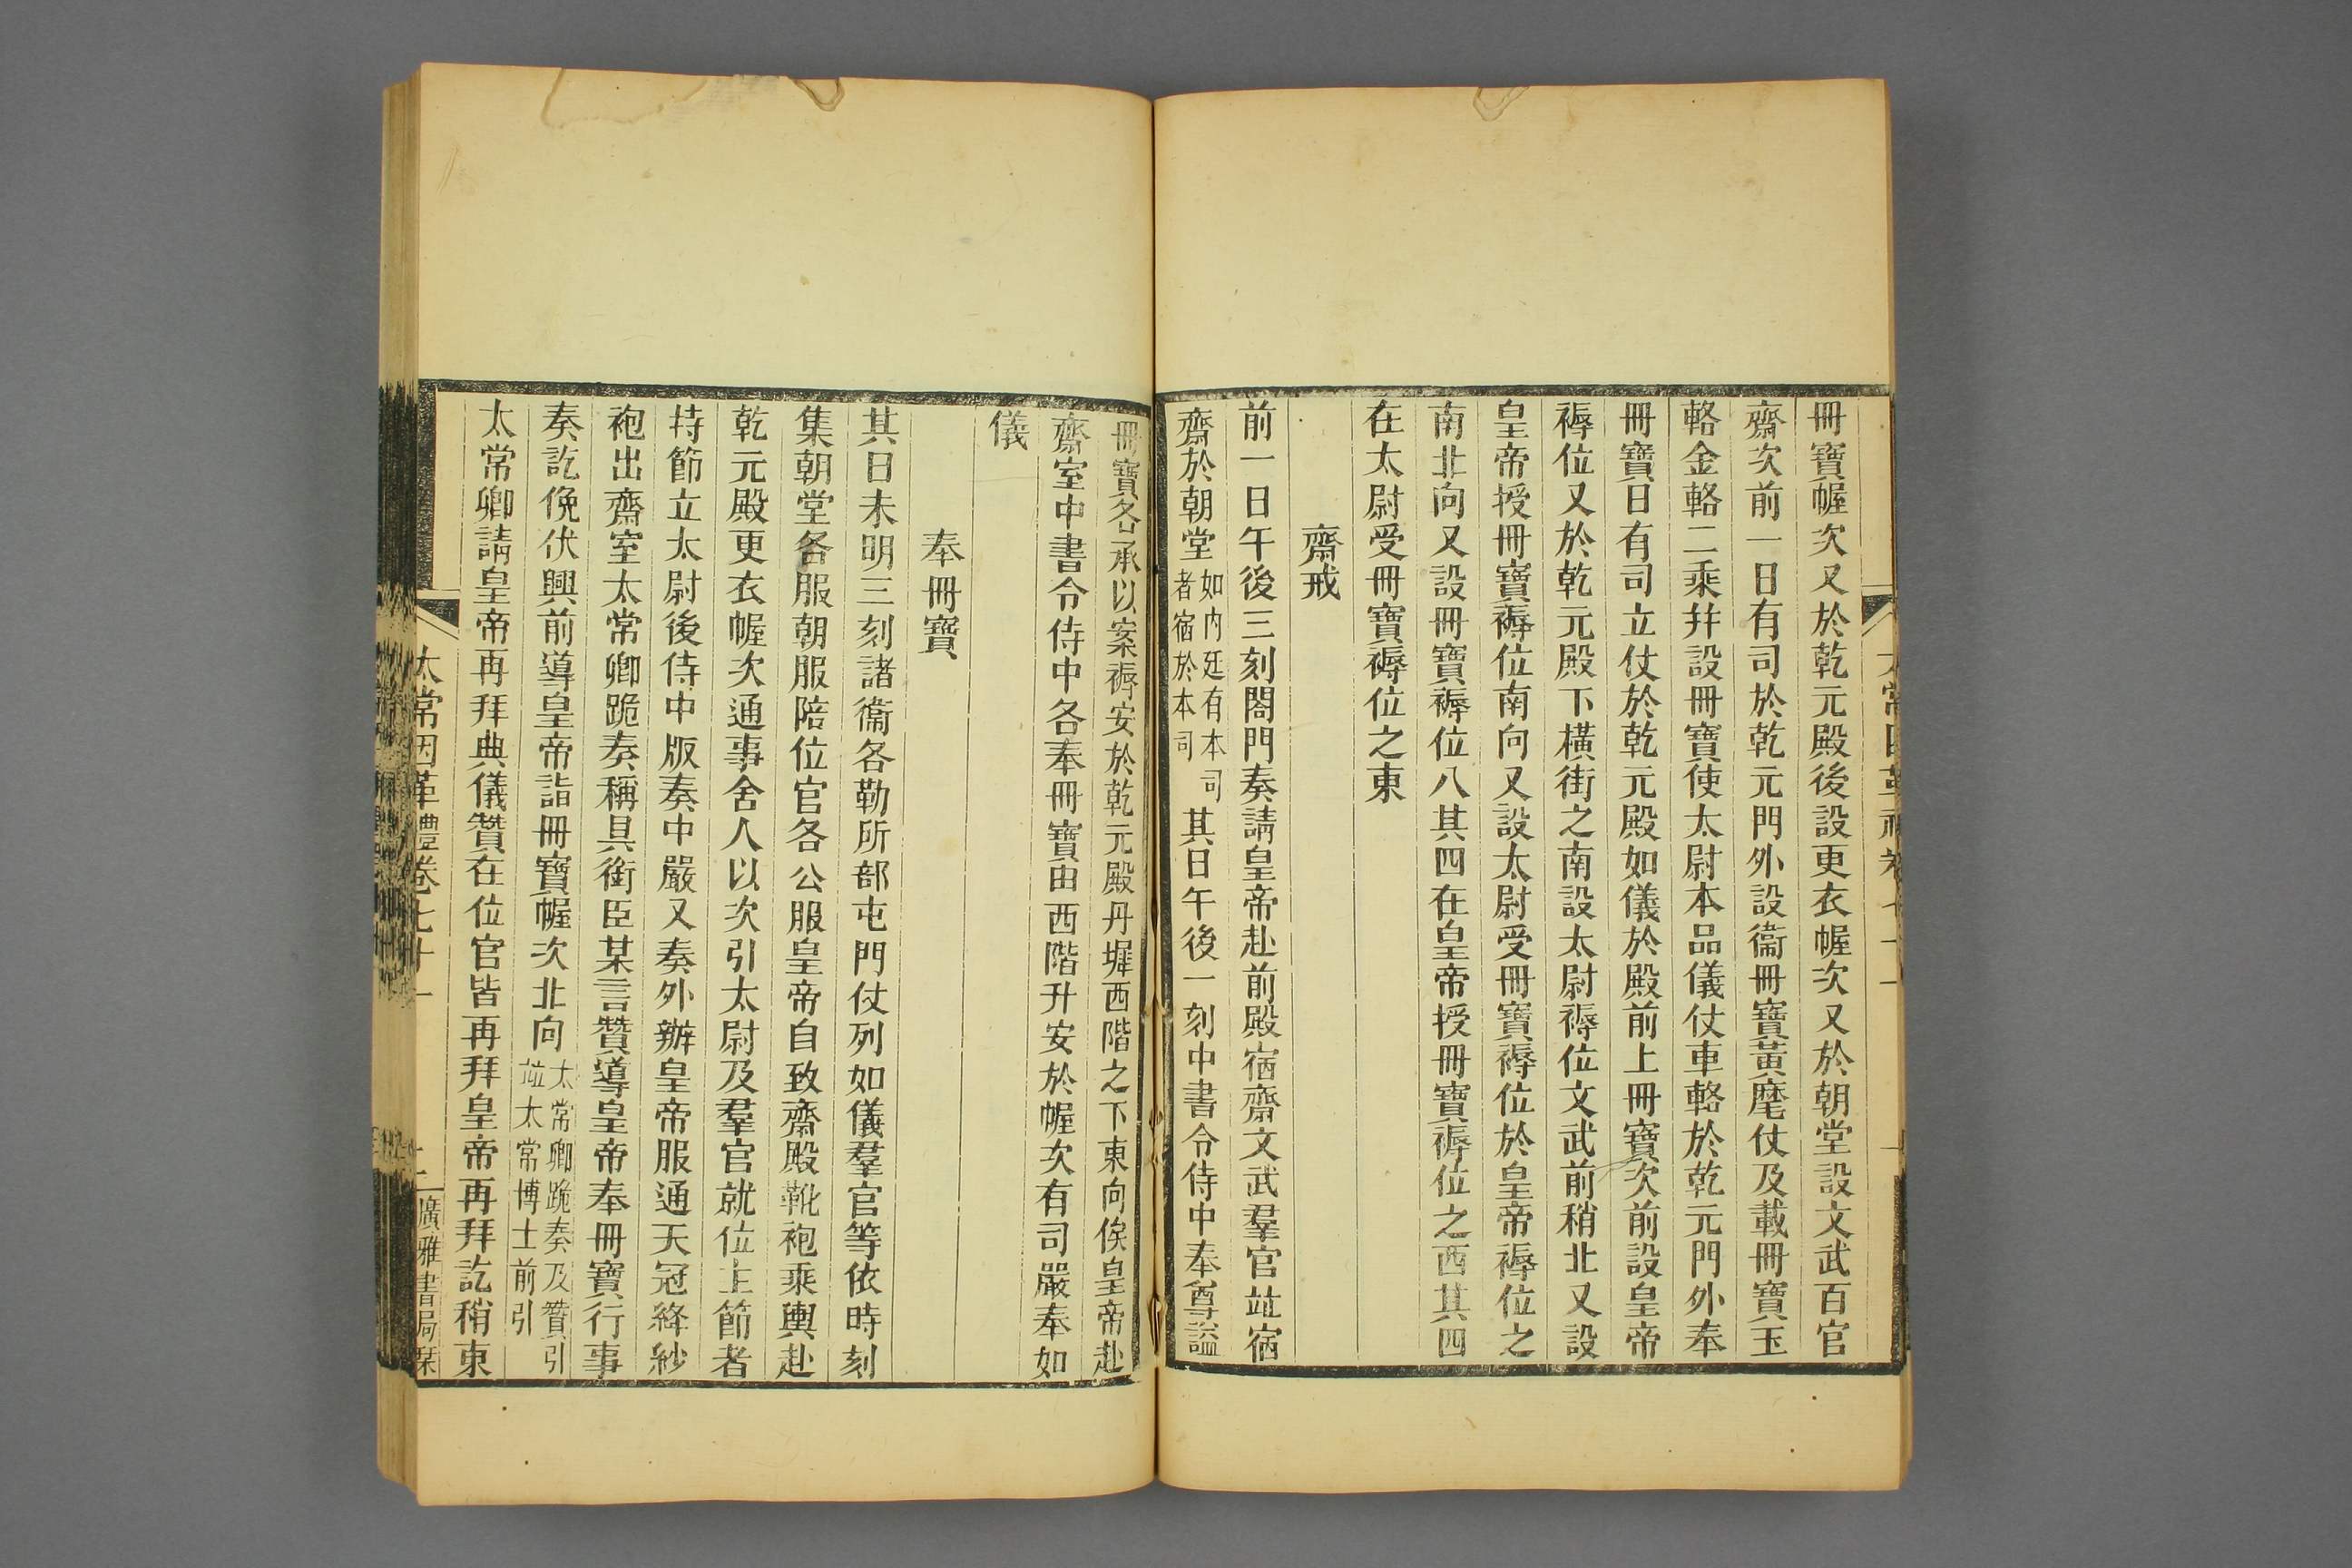 冊寶幄次又於乾元殿後設更衣幄次又於朝堂設文武百官
齋次前一日有司於乾元門外設衞冊寶黃麾仗及載冊寶玉
輅金輅二乘幷設冊寶使太尉本品儀仗車輅於乾元門外奉
冊寶日有司立仗於乾元殿如儀於殿前上冊寶次前設皇帝
褥位又於乾元殿下橫街之南設太尉褥位文武前稍北又設
皇帝授冊寶褥位南向又設太尉受冊寶褥位於皇帝褥位之
南北向又設冊寶褥位八其四在皇帝授冊寶褥位之西其四
在太尉受冊寶褥位之東
齋戒
前一日午後三刻閤門奏請皇帝赴前殿宿齋文武羣官竝宿
齋於朝堂如內廷有本司者宿於本司其日午後一刻中書令侍中奉尊謚
冊寶各承以案褥安於乾元殿丹墀西階之下東向俟皇帝赴
齋室中書令侍中各奉冊寶由西階升安於幄次有司嚴奉如
儀
奉冊寶
其日未明三刻諸衞各勒所部屯門仗列如儀羣官等依時刻
集朝堂各服朝服陪位官各公服皇帝自致齋殿靴袍乘輿赴
乾元殿更衣幄次通事舍人以次引太尉及羣官就位主節者
持節立太尉後侍中版奏中嚴又奏外辦皇帝服通天冠絳紗
袍出齋室太常卿跪奏稱具銜臣某言贊導皇帝奉冊寶行事
奏訖俛伏興前導皇帝詣冊寶幄次北向太常卿跪奏及贊引竝太常博士前引
太常卿請皇帝再拜典儀贊在位官皆再拜皇帝再拜訖稍東
太常因革禮卷七十一
二
廣雅書局栞